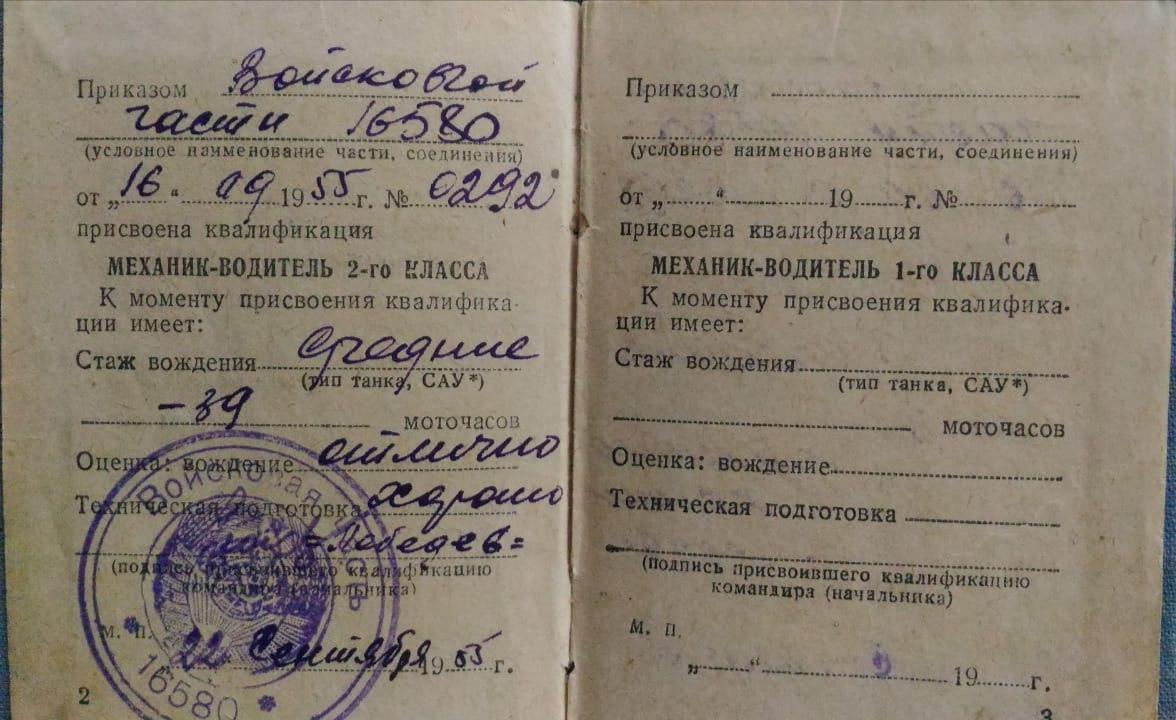 Приказом Войсковой
части 16580
(условное наименование части, соединения)
от „16 “ 09 1955 г. № 0292
присвоена квалификация
МЕХАНИК-ВОДИТЕЛЬ 2-го КЛАССА
К моменту присвоения квалифика-
ции имеет:
Стаж вождения средние
(тип танка, САУ*)
-39 моточасов
Оценка: вождение отлично
Техническая подготовка хорошо
=Лебедев=
(подпись присвоившего квалификацию
командира (начальника)
М. П.
22 Сентября 1955 г.
Войсковая часть
* 16580 *
2
Приказом
(условное наименование части, соединения)
от „ “ 19 г. №
присвоена квалификация
МЕХАНИК-ВОДИТЕЛЬ 1-го КЛАССА
К моменту присвоения квалифика-
ции имеет:
Стаж вождения
(тип танка, САУ*)
моточасов
Оценка: вождение
Техническая подготовка
(подпись присвоившего квалификацию
командира (начальника)
М. П.
„ “ 19 г.
3